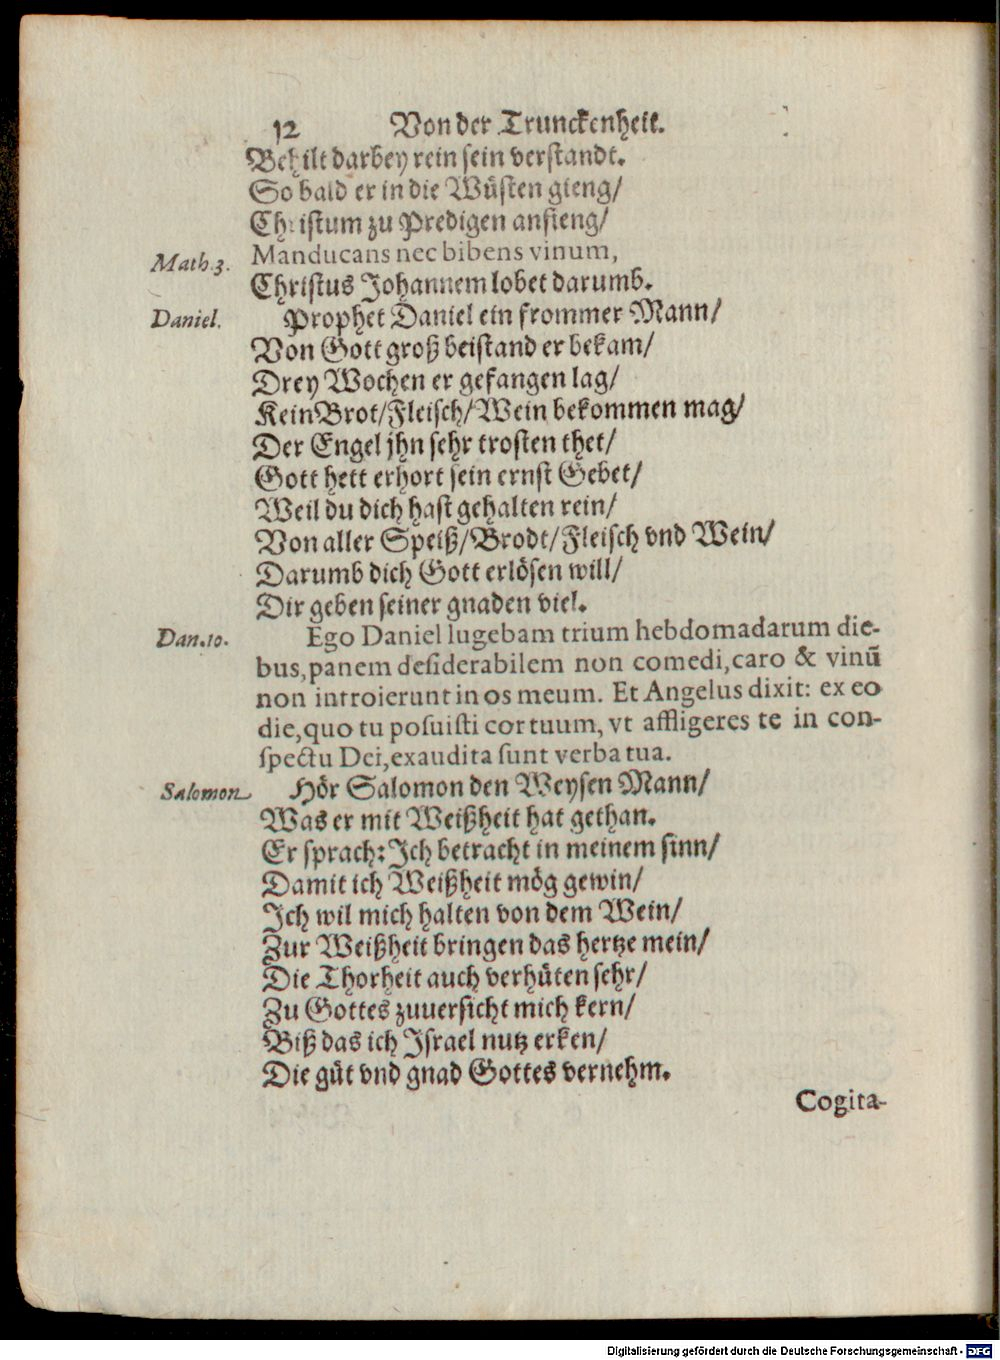 12 Von der Trunckenheit.
Behilt darbey rein sein verstandt.
So bald er in die Wüsten gieng/
Christum zu Predigen anfieng/
Math.3. Manducans nec bibens vinum,
Christus Johannem lobet darumb.
Daniel. Prophet Daniel ein frommer Mann/
Von Gott groß beistand er bekam/
Drey Wochen er gefangen lag/
Kein Brot/Fleisch/Wein bekommen mag/
Der Engel jhn sehr trosten thet/
Gott hett erhort sein ernst Gebet/
Weil du dich hast gehalten rein/
Von aller Speiß/Brodt/Fleisch vnd Wein/
Darumb dich Gott erlösen will/
Dir geben seiner gnaden viel.
Dan.10. Ego Daniel lugebam trium hebdomadarum die-
bus, panem desiderabilem non comedi, caro & vinũ
non introierunt in os meum. Et Angelus dixit: ex eo
die, quo tu posuisti cor tuum, vt affligeres te in con-
spectu Dei, exaudita sunt verba tua.
Salomon Hör Salomon den Weysen Mann/
Was er mit Weißheit hat gethan.
Er sprach: Ich betracht in meinem sinn/
Damit ich Weißheit mög gewin/
Ich wil mich halten von dem Wein/
Zur Weißheit bringen das hertze mein/
Die Thorheit auch verhüten sehr/
Zu Gottes zuuersicht mich kern/
Biß das ich Israel nutz erken/
Die güt vnd gnad Gottes vernehm.
Cogita-
Digitalisierung gefördert durch die Deutsche Forschungsgemeinschaft - DFG